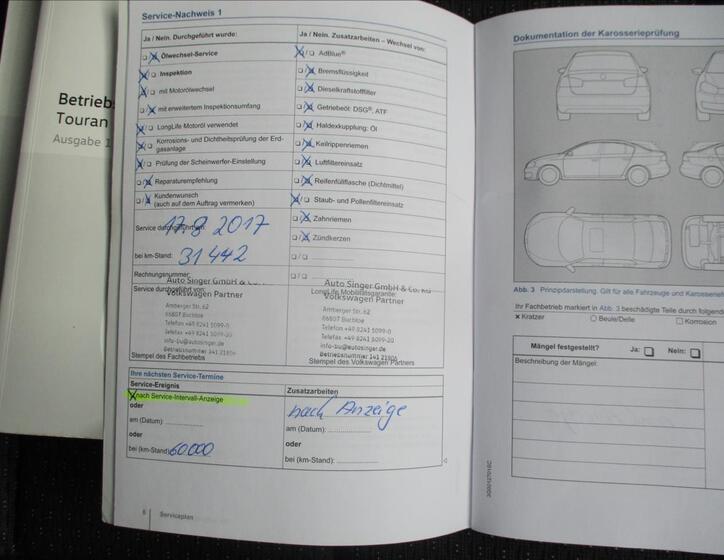 Betrieb
Touran
Ausgabe 1
Service-Nachweis 1
Ja / Nein. Durchgeführt wurde:
Ölwechsel-Service
Inspektion
mit Motorölwechsel
mit erweitertem Inspektionsumfang
LongLife Motoröl verwendet
Korrosions- und Dichtheitsprüfung der Erd-
gasanlage
Prüfung der Scheinwerfer-Einstellung
Reparaturempfehlung
Kundenwunsch
(auch auf dem Auftrag vermerken)
Service durchgeführt am: 17.8 2017
bei km-Stand: 31442
Rechnungsnummer:
Service durchgeführt von:
Auto Singer GmbH & Co.
Volkswagen Partner
Amberger Str. 62
86807 Buchloe
Telefon +49 8241 5099-0
Telefax +49 8241 5099-20
info-bu@autosinger.de
Betriebsnummer 141 21806
Stempel des Fachbetriebs
Ja / Nein. Zusatzarbeiten – Wechsel von:
AdBlue®
Bremsflüssigkeit
Dieselkraftstofffilter
Getriebeöl: DSG®, ATF
Haldexkupplung: Öl
Keilrippenriemen
Luftfiltereinsatz
Reifenfüllflasche (Dichtmittel)
Staub- und Pollenfiltereinsatz
Zahnriemen
Zündkerzen
Auto Singer GmbH & Co. KG
LongLife Mobilitätsgarantie:
Volkswagen Partner
Amberger Str. 62
86807 Buchloe
Telefon +49 8241 5099-0
Telefax +49 8241 5099-20
info-bu@autosinger.de
Betriebsnummer 141 21806
Stempel des Volkswagen Partners
Ihre nächsten Service-Termine
Service-Ereignis
nach Service-Intervall-Anzeige
oder
am (Datum):
oder
bei (km-Stand) 60.000
Zusatzarbeiten
nach Anzeige
am (Datum):
oder
bei (km-Stand):
6 Serviceplan
Dokumentation der Karosserieprüfung
Abb. 3 Prinzipdarstellung. Gilt für alle Fahrzeuge und Karosserief
Ihr Fachbetrieb markiert in Abb. 3 beschädigte Teile durch folgend
x Kratzer Beule/Delle Korrosion
Mängel festgestellt? Ja: Nein:
Beschreibung der Mängel: